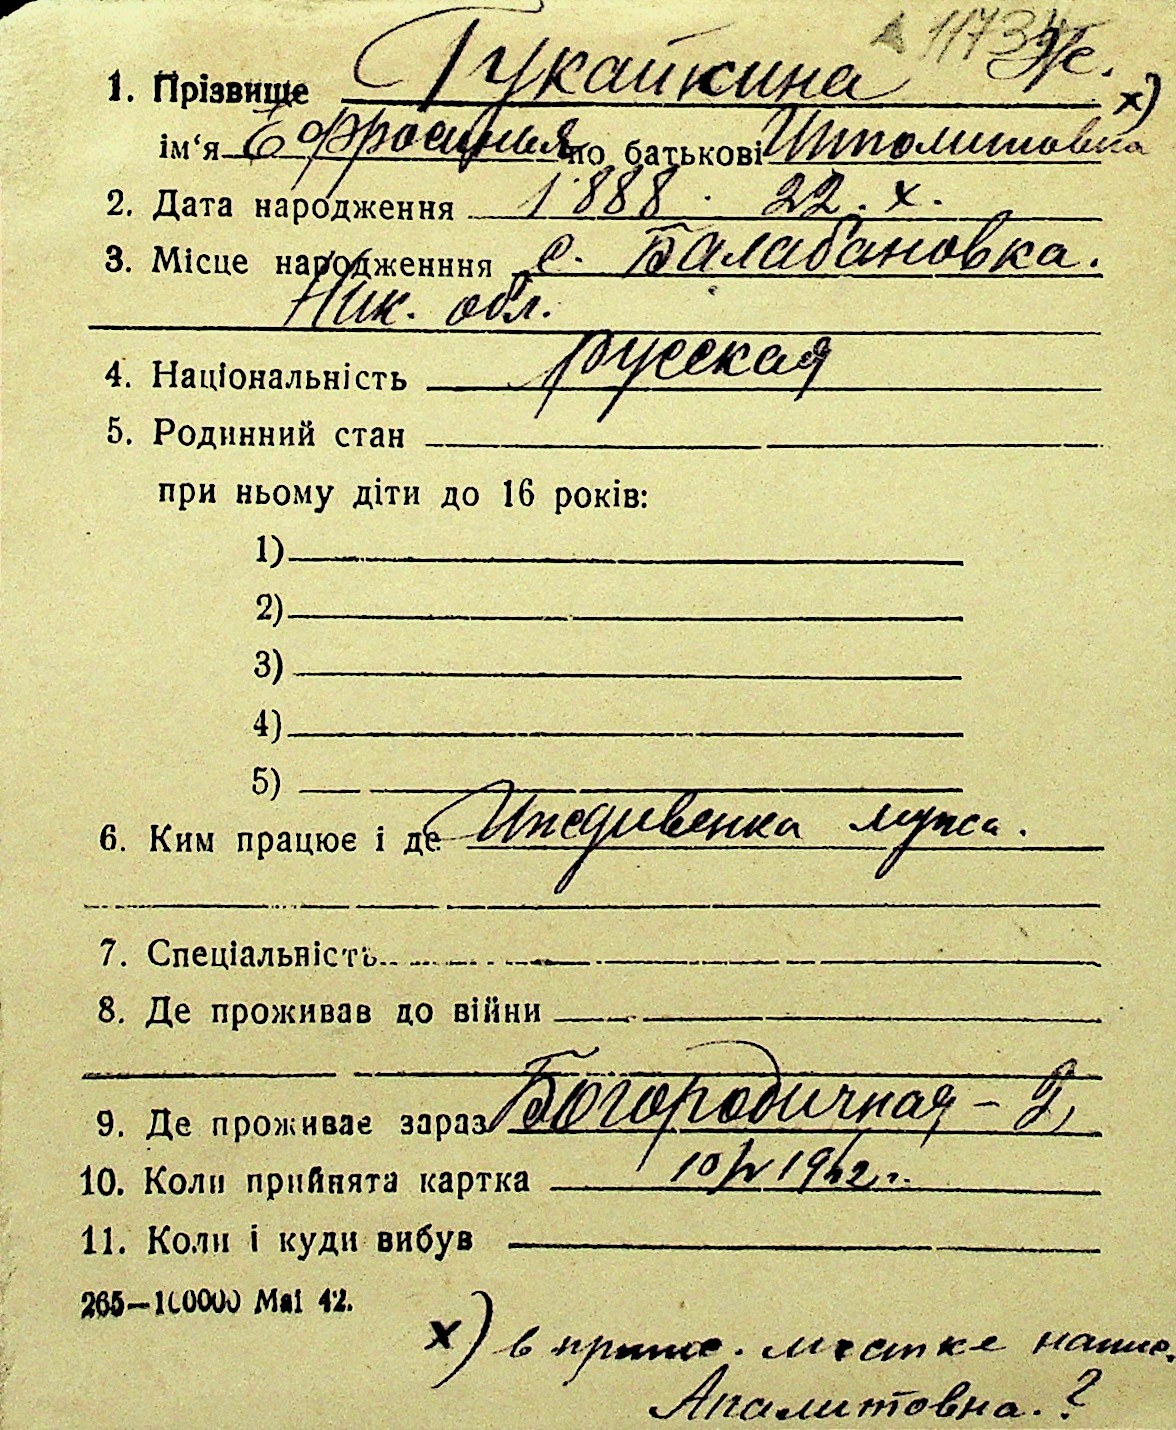 11734
1. Прізвище Гукайкина Ж.
ім'я Ефросинья по батькові Иполитовна x)
2. Дата народження 1888. 22. X.
3. Місце народженння с. Балабановка.
Ник. обл.
4. Національність русская
5. Родинний стан
при ньому діти до 16 років:
1)
2)
3)
4)
5)
6. Ким працює і де Иждивенка мужа.
7. Спеціальність
8. Де проживав до війни
9. Де проживає зараз Богородичная - 2,
10. Коли прийнята картка 10/V 1942 г.
11. Коли і куди вибув
265—100000 Mai 42.
x) в припис. листке напис.
Апалитовна. ?